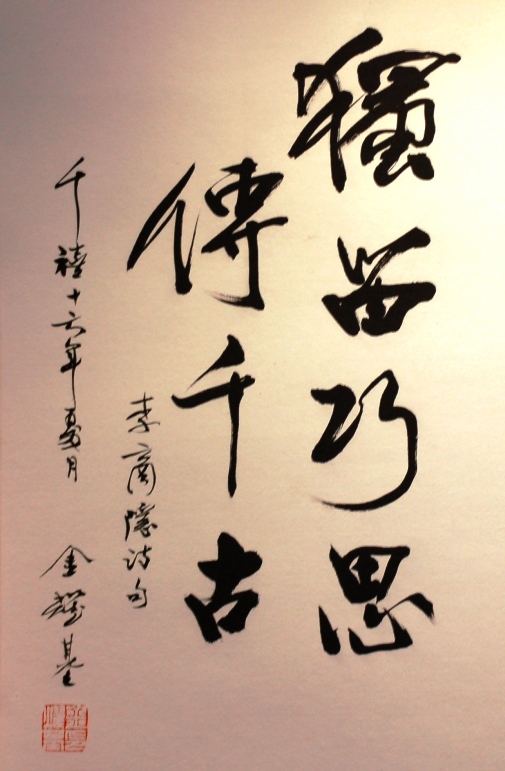 獨留巧思
傳千古
李商隱詩句
千禧十六年夏月
金耀基